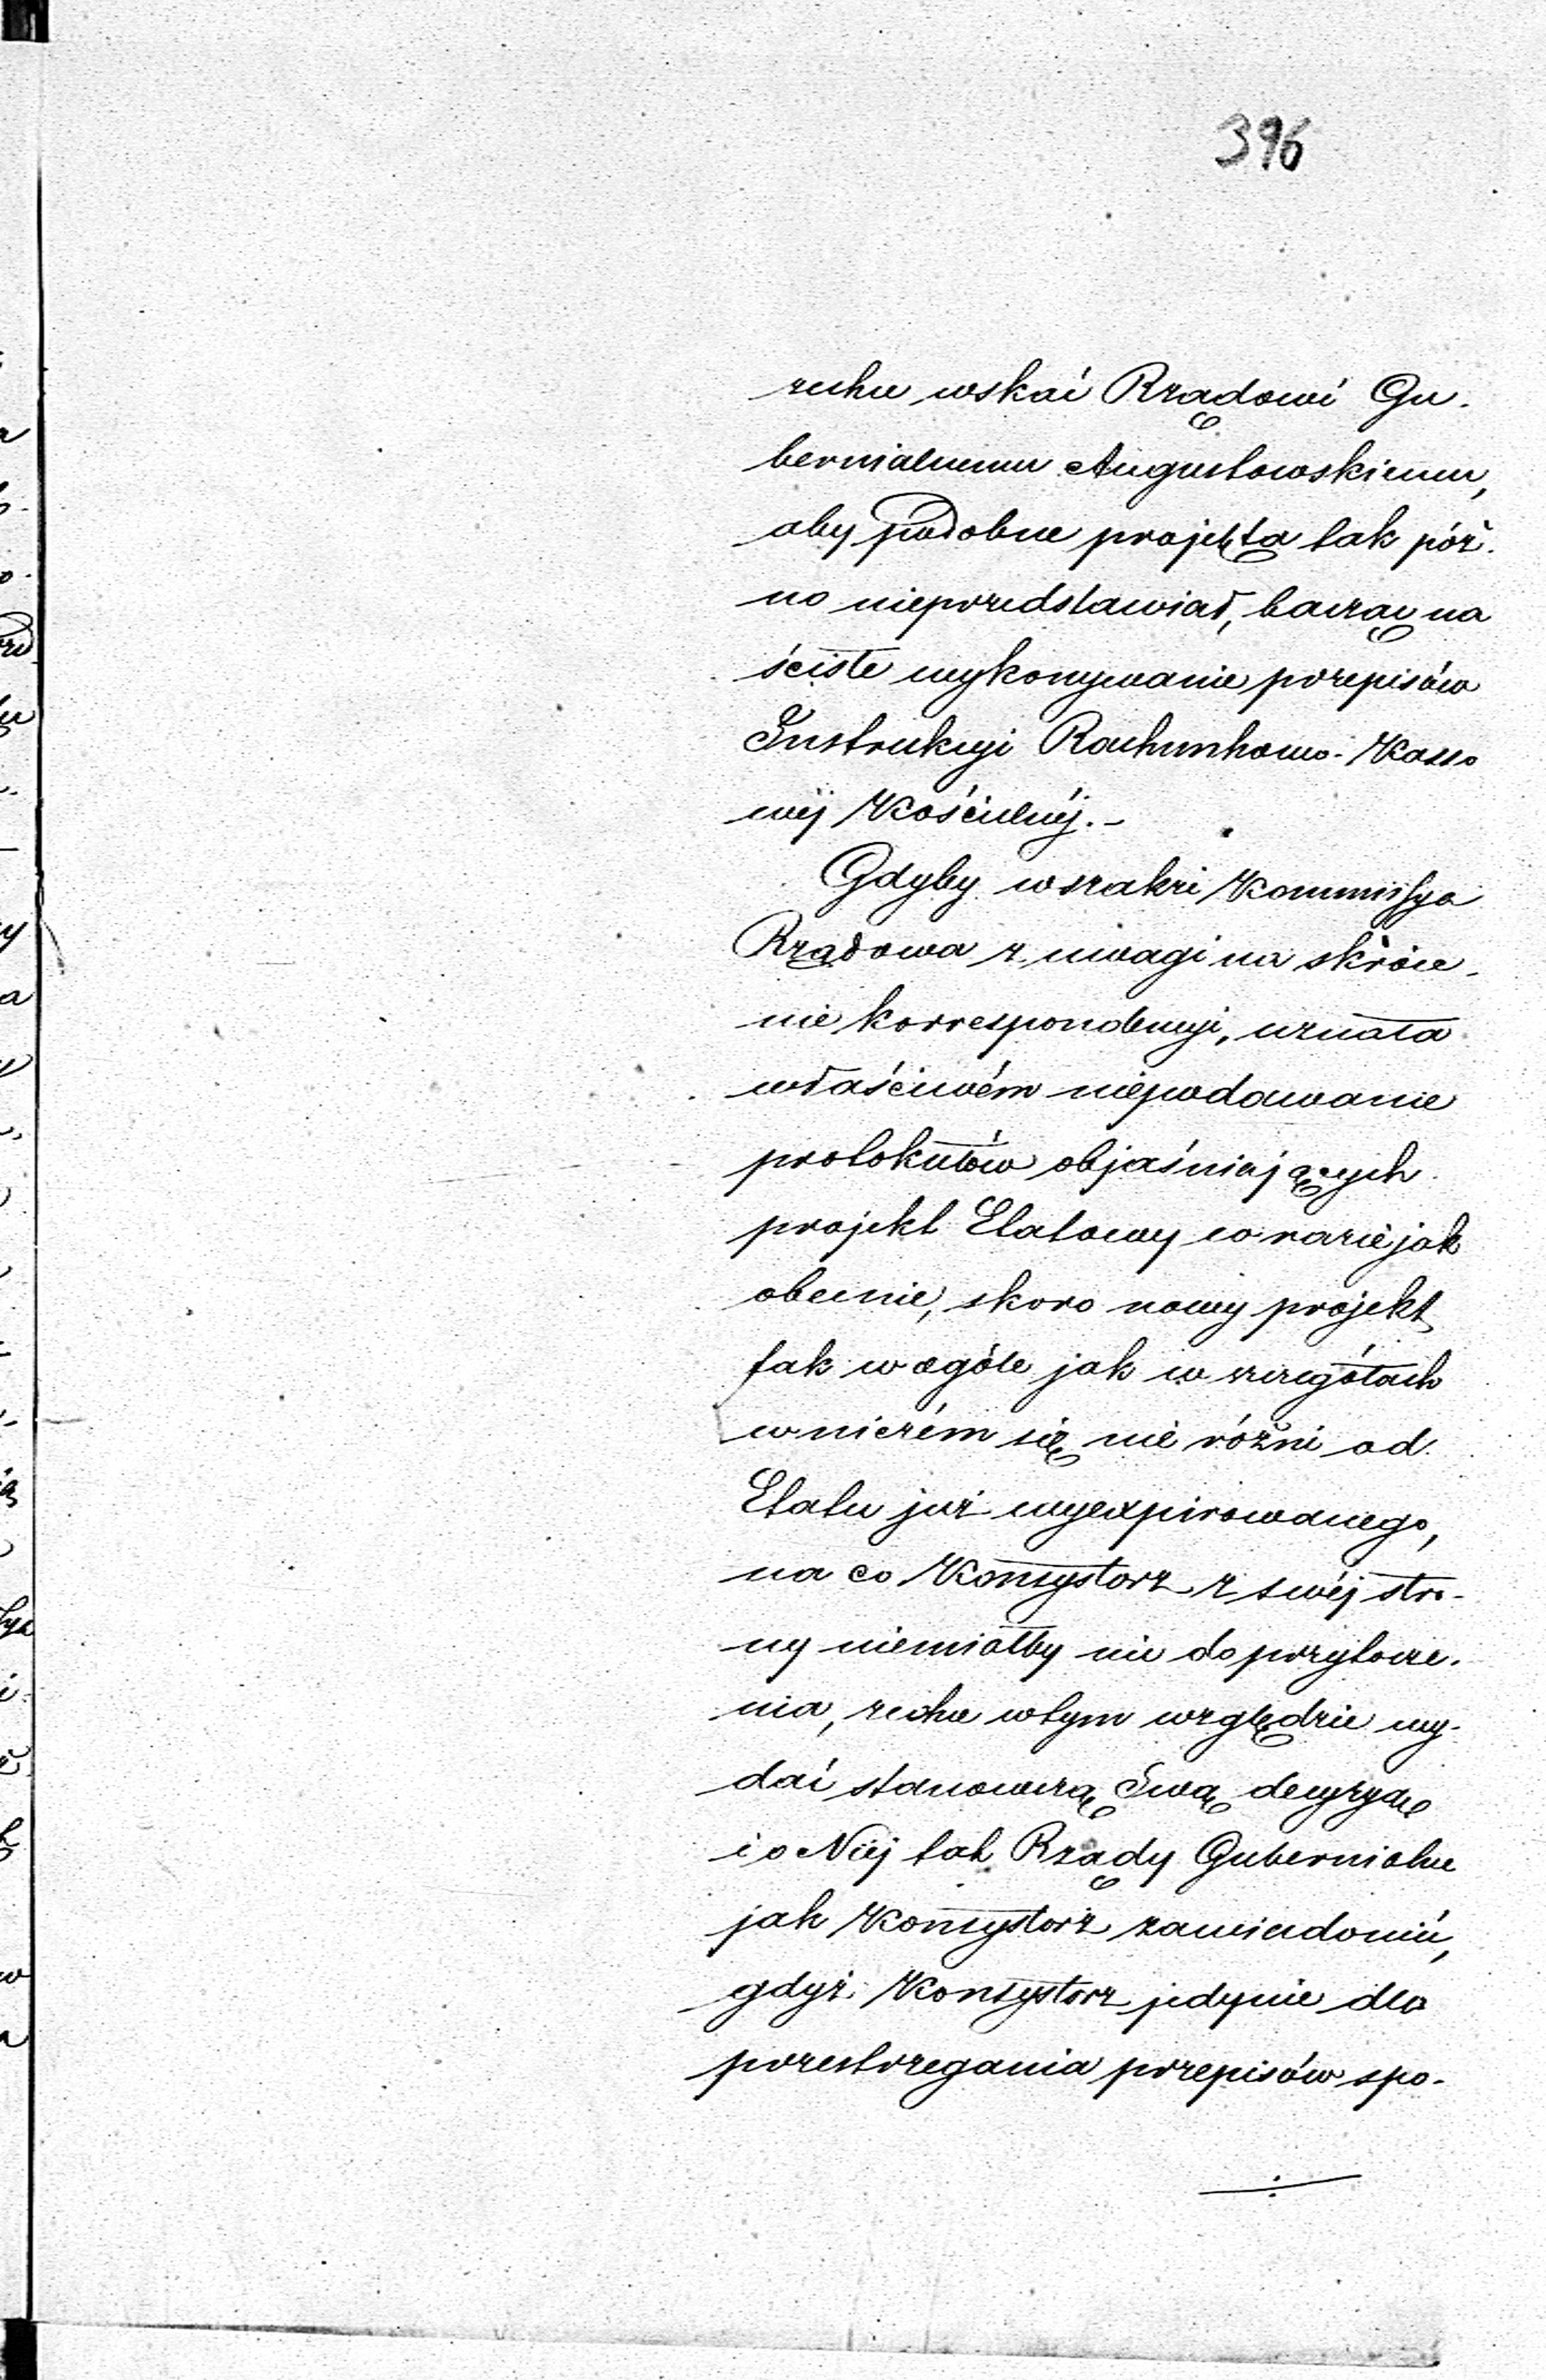 396
zechce wskać Rządowi Gu-
bernialnemu Augustowskiemu,
aby podobne projekta tak póź-
no nieprzedstawiał, bacząc na
ściste wykonywanie przepisów
Instrukcyi Rachunkowo-Kasso
wéj Kościelnéj.-
Gdyby wszakże Kommissya
Rządowa z uwagi na skróce-
nie korrespondencyi, uznała
właściwém niepodawanie
protokułów objaśniających
projekt Etatowy w razie jak
obecnie, skoro nowy projekt
tak w ogóle jak w szczegółach
w niczém się nie różni od
Etatu już wyexpirowanego,
na co Konsystorz z swéj stro-
ny niemiałby nic do przytocze-
nia, zechce wtym względzie wy-
dać stanowczą Swą decyzyą
i o Niéj tak Rządy Gubernialne
jak Konsystorz zawiadomić,
gdyż Konsystorz jedynie dla
przestrzegania przepisów spo-